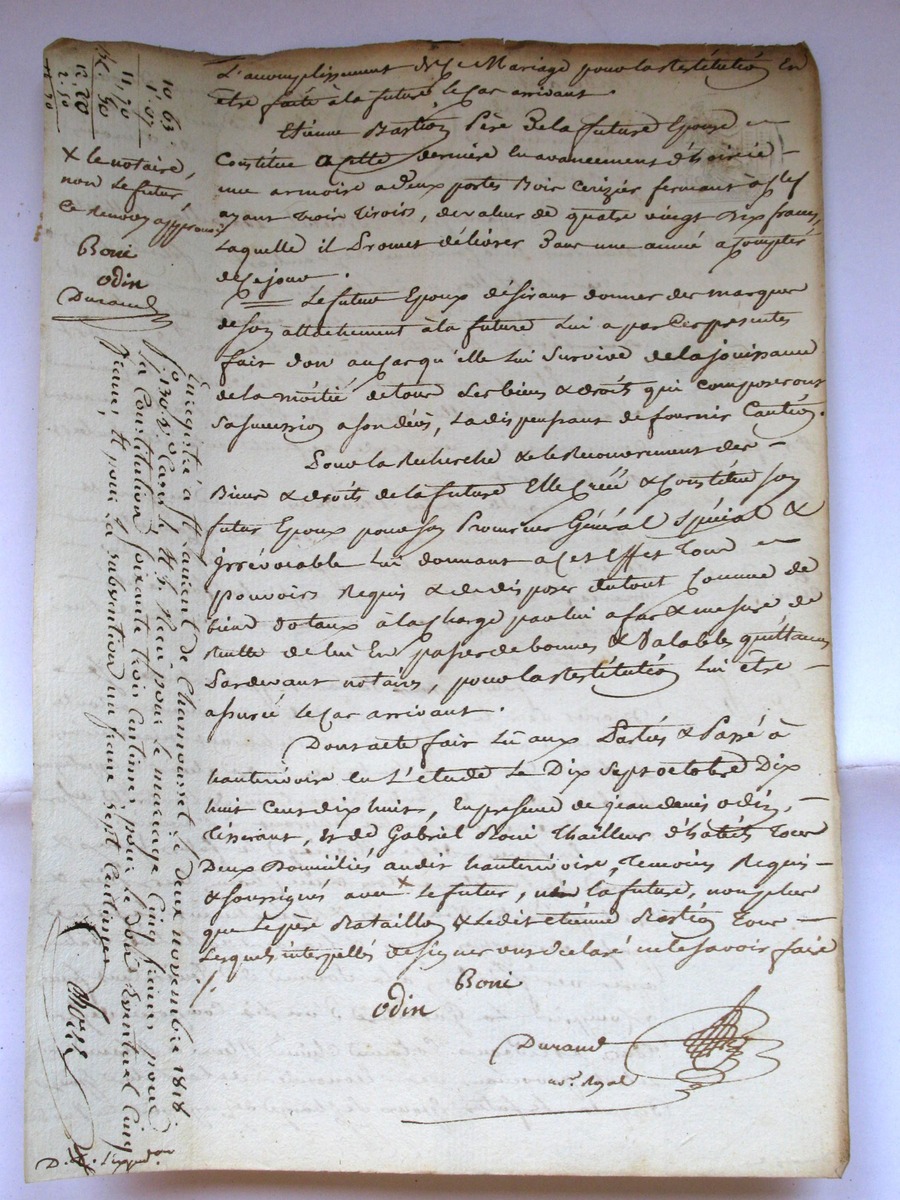 L'accomplissement de ce Mariage pour la Restitution En
être faite à la future, le cas arrivant.
Etienne Bastion Père de la future Epouse
Constitue a cette derniere en avancement d'hoirie
une armoire a deux portes Bois Cerizier fermant à clef
ayant trois tiroirs, de valeur de quatre vingt dix francs,
Laquelle il Promet délivrer dans une année a Compter
de ce jour.
Le futur Epoux désirant donner des marques
de son attachement à la future Lui a par ces presentes
fait don au cas qu'elle lui Survive de la jouissance
de la môitié de tous les biens & droits qui composeront
sa succession a son décès, La dispensant de fournir Caution.
Pour la Recherche & le Recouvrement des
Biens & droits de la future Elle Créé & Constitue son
futur Epoux pour son Procureur Général Spécial &
irrévocable lui donnant a cet Effet Tous
pouvoirs Requis & de disposer du tout comme de
biens dotaux à la charge par lui a fur & mesure de
Recette de lui En passer de bonnes & Valables quittances
Pardevant notaires, pour la Restitution lui être
assurée le cas arrivant.
Dont acte fait Lû aux Parties & Passé à
hauterivoire en L'étude Le Dix Sept octobre Dix
huit Cent dix huit, En présence de jean denis odin,
Tisserant, & de Gabriel Boni Thailleur d'habits Tous
Deux Domiciliés audit hauterivoire, Temoins Requis
& soussignés avec x le futur, la future, non plus
que le père Bataillon & ledit etiénne Bastion Tous
Lesquels interpellés de signer ont déclaré ne le savoir faire
Boni
odin
Durand
no.re Royal
10 63
1 07
11,70
12,20
2,50
x le notaire,
non le futur,
Ce Renvoy approuvé
Boni
odin
Durand
Enregistré à St Laurent de Chamousset le deux novembre 1818.
f.o 130 Reçu pour le mariage Cinq francs pour
La Constitution soixante trois Centimes, pour le don Eventuel Cinq
francs, & pour La Subvention un franc sept Centimes